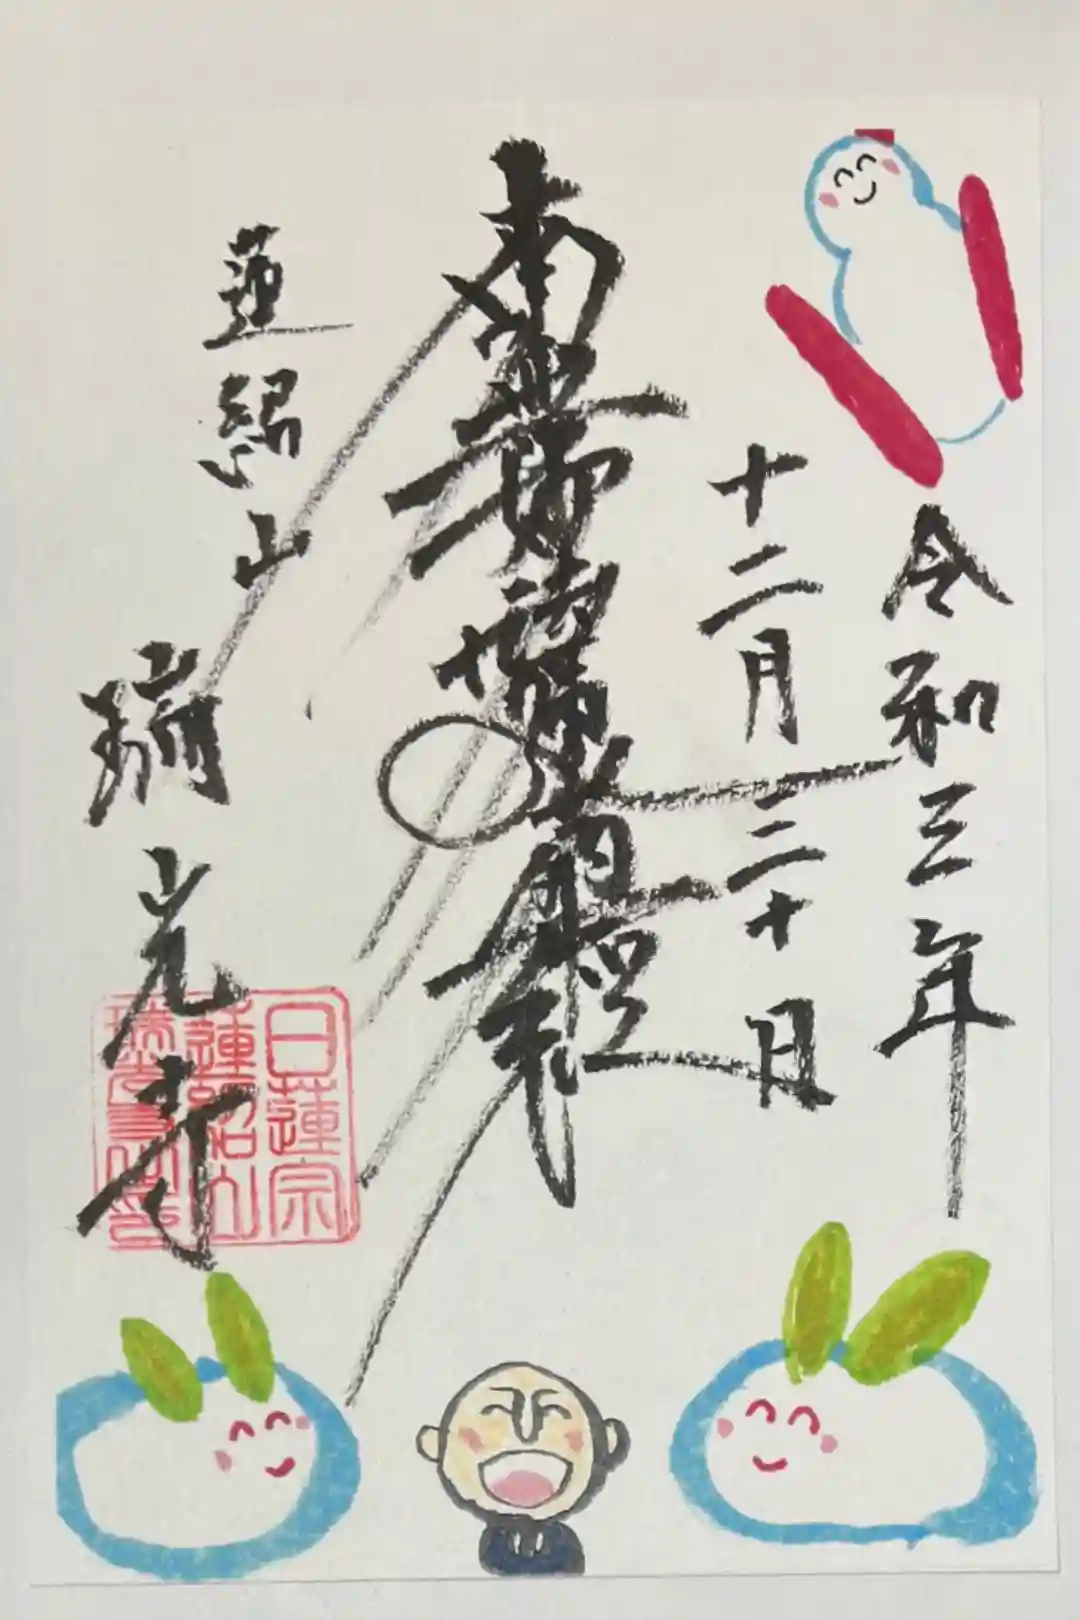 令和三年
十二月三十日
南無妙法蓮華経
蓮紹山
瑞光寺
日蓮宗
蓮紹山